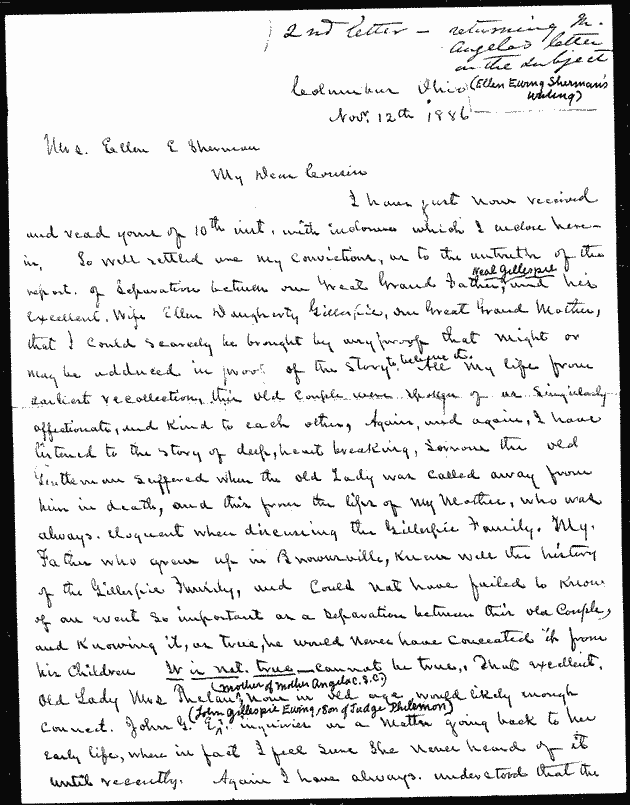 2nd letter - returning M.
Angela's letter
on the subject
(Ellen Ewing Sherman's
writing)
Columbus Ohio
Nov. 12th 1886
Mrs. Ellen E Sherman
My Dear Cousin
I have just now received
and read yours of 10th inst. with inclosures which I inclose here-
in. So well settled are my convictions, as to the untruth of the
report. of Separation between our Great Grand Father, and his
Neal Gillespie
Excellent. Wife Ellen Daugherty Gillespie, our Great Grand Mother,
that I could scarcely be brought by any proofs that might or
may be adduced in proof of the Story to believe it. All my life from
earliest recollection, this old Couple were spoken of as Singularly
affectionate, and Kind to each other, Again, and again, I have
listened to the Story of deep, heart breaking, Sorrow the old
Gentleman Suffered when the old Lady was called away from
him in death, and this from the lips of My Mother, who was
always. eloquent when discussing the Gillespie Family. My.
Father who grew up in Brownsville, Knew well the history
of the Gillespie Family, and Could not have failed to Know
of an event So important as a Separation between this old Couple,
and Knowing it, as true, he would never have concealed it from
his Children It is not. true - cannot be true,. That excellent.
(mother of Mother Angela C.S.C.)
Old Lady Mrs Phelan, now in old age, would likely enough
(John Gillespie Ewing, son of Judge Philemon)
Connect. John G. E's inquiries as a Matter going back to her
Early life, where in fact I feel Sure She never heard of it
until recently. Again I have always. understood that the